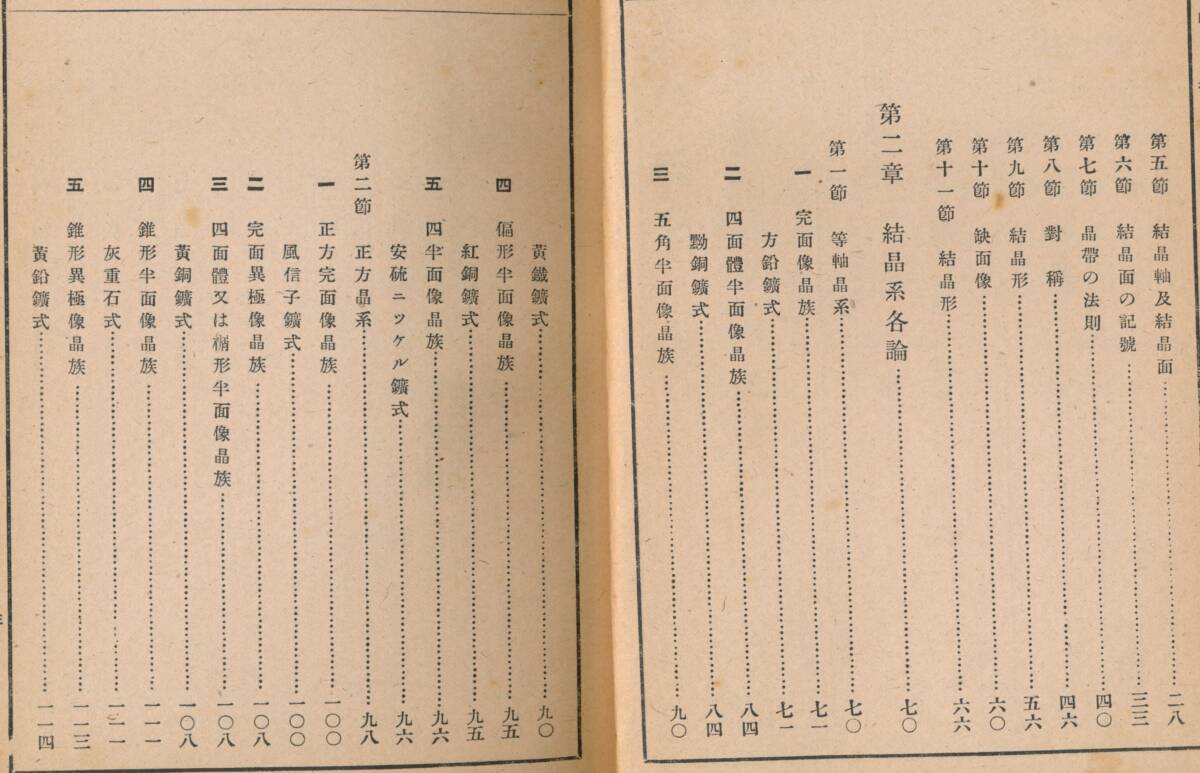 第五節 結晶軸及結晶面………二八
第六節 結晶面の記號………三三
第七節 晶帶の法則………四〇
第八節 對稱………四六
第九節 結晶形………五六
第十節 缺面像………六〇
第十一節 結晶形………六六
第二章 結晶系各論………七〇
第一節 等軸晶系………七〇
一 完面像晶族………七一
方鉛鑛式………七一
二 四面體半面像晶族………八四
黝銅鑛式………八四
三 五角半面像晶族………九〇
黃鐵鑛式………九〇
四 偏形半面像晶族………九五
紅銅鑛式………九五
五 四半面像晶族………九六
安硫ニッケル鑛式………九六
第二節 正方晶系………九八
一 正方完面像晶族………一〇〇
風信子鑛式………一〇〇
二 完面異極像晶族………一〇八
三 四面體又は楔形半面像晶族………一〇八
黃銅鑛式………一〇八
四 錐形半面像晶族………一一一
灰重石式………一一一
五 錐形異極像晶族………一一三
黃鉛鑛式………一一四